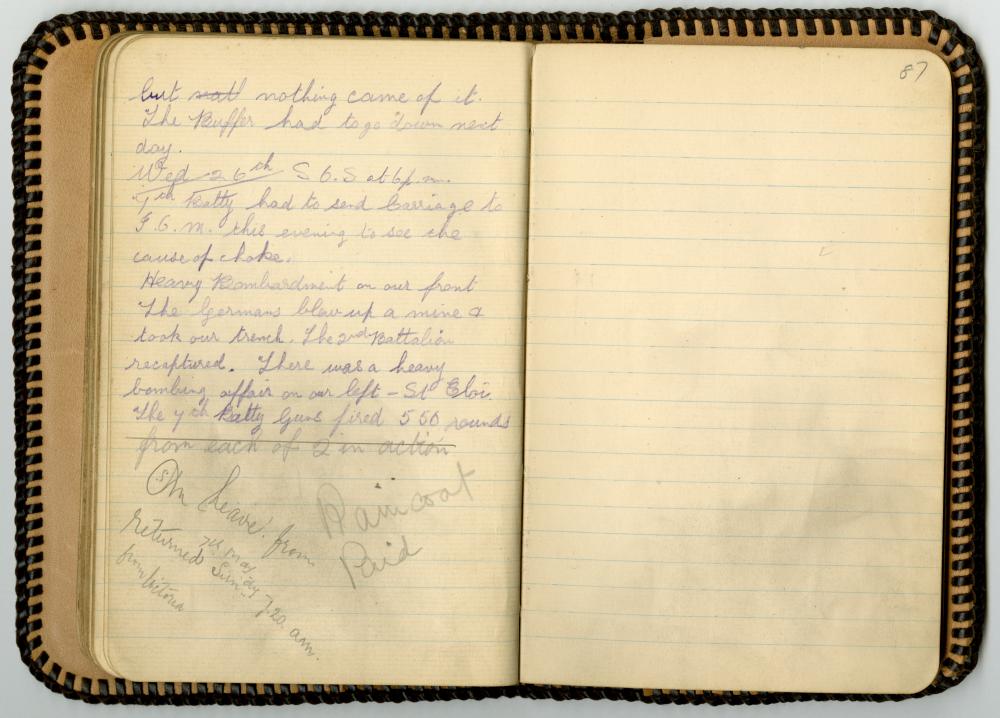 but nothing came of it.
The Buffer had to go down next
day.
Wed 26th S.O.S at 6 p.m.
7th Batty had to send Carriage to
I.O.M. this evening to see the
cause of choke.
Heavy Bombardment on our front
The Germans blew up a mine &
took our trench. The 2nd Battalion
recaptured. There was a heavy
bombing affair on our left - St Eloi.
The 7th Batty Guns fired 550 rounds
from each of 2 in action
On leave! from
returned Sun. 7.20 a.m.
7th May
from
Raincoat
Paid
87